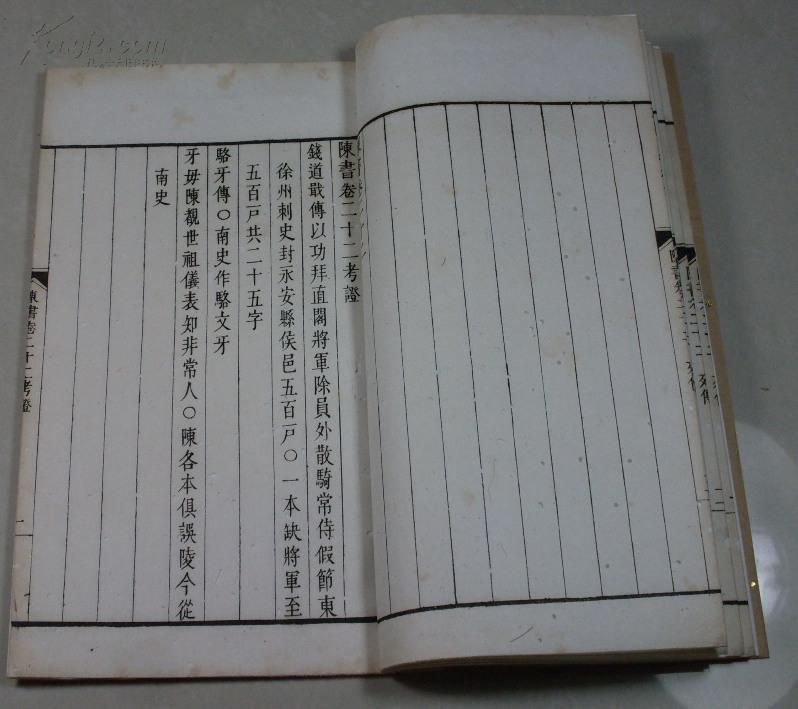 陳書卷二十二考證
錢道戢傳以功拜直閣將軍除員外散騎常侍假節東
徐州刺史封永安縣侯邑五百戸〇一本缺將軍至
五百戸共二十五字
駱牙傳〇南史作駱文牙
牙毋陳覩世祖儀表知非常人〇陳各本俱誤陵今從
南史
陳書卷二十二考證
二